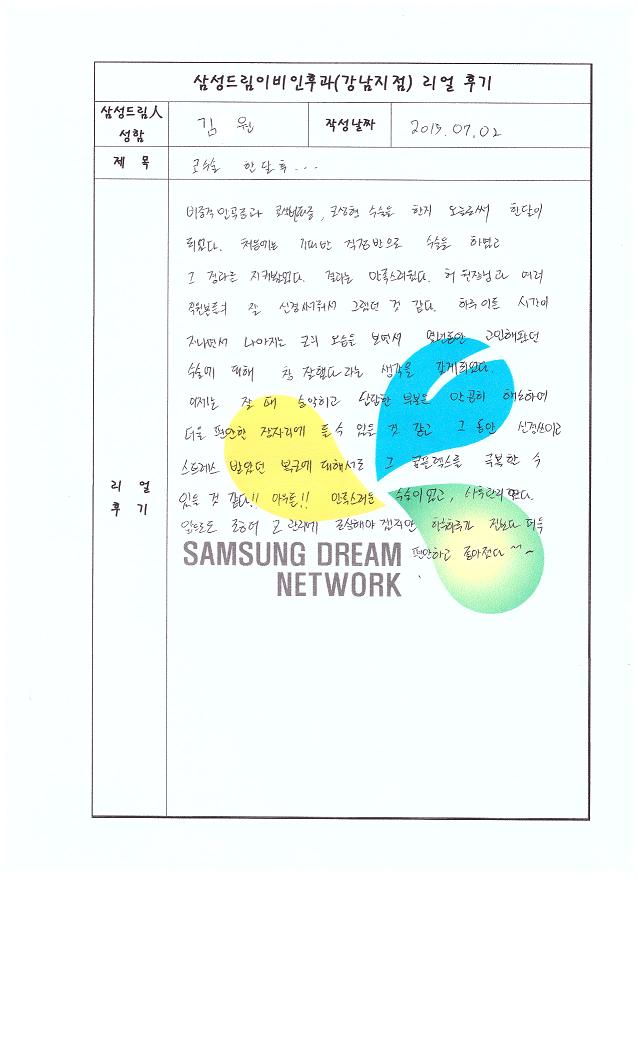 삼성드림이비인후과(강남지점) 리얼 후기
삼성드림人
성함
김 원
작성날짜
2015.07.02
제 목
코수술 한달 후...
리 얼
후 기
비중격 만곡증과 , 코성형 수술을 한지 오늘로써 한달이
되었다. 처음에는 기대반 걱정반으로 수술을 하였고
그 결과를 지켜봤었다. 결과는 만족스러웠다. 허 원장님과 여러
직원분들의 잘 신경써줘서 그랬던 것 같다. 하루 이틀 시간이
지나면서 나아지는 코의 모습을 보면서 몇년동안 고민해왔던
수술에 대해 참 잘했다 라는 생각을 갖게되었다.
이제는 잘 때 하고 답답한 부분을 해소하여
더욱 편안한 잠자리에 들 수 있을 것 같고 그 동안 신경쓰이고
스트레스 받았던 에 대해서도 그 콤플렉스를 극복한 수
있을 것 같다!! 아무튼!! 만족스러운 수술이었고,
앞으로도 좀더 코 관리에 조심해야 겠지만 하루하루가 전보다 더욱
편안하고 좋아졌다 ^^~
SAMSUNG DREAM
NETWORK